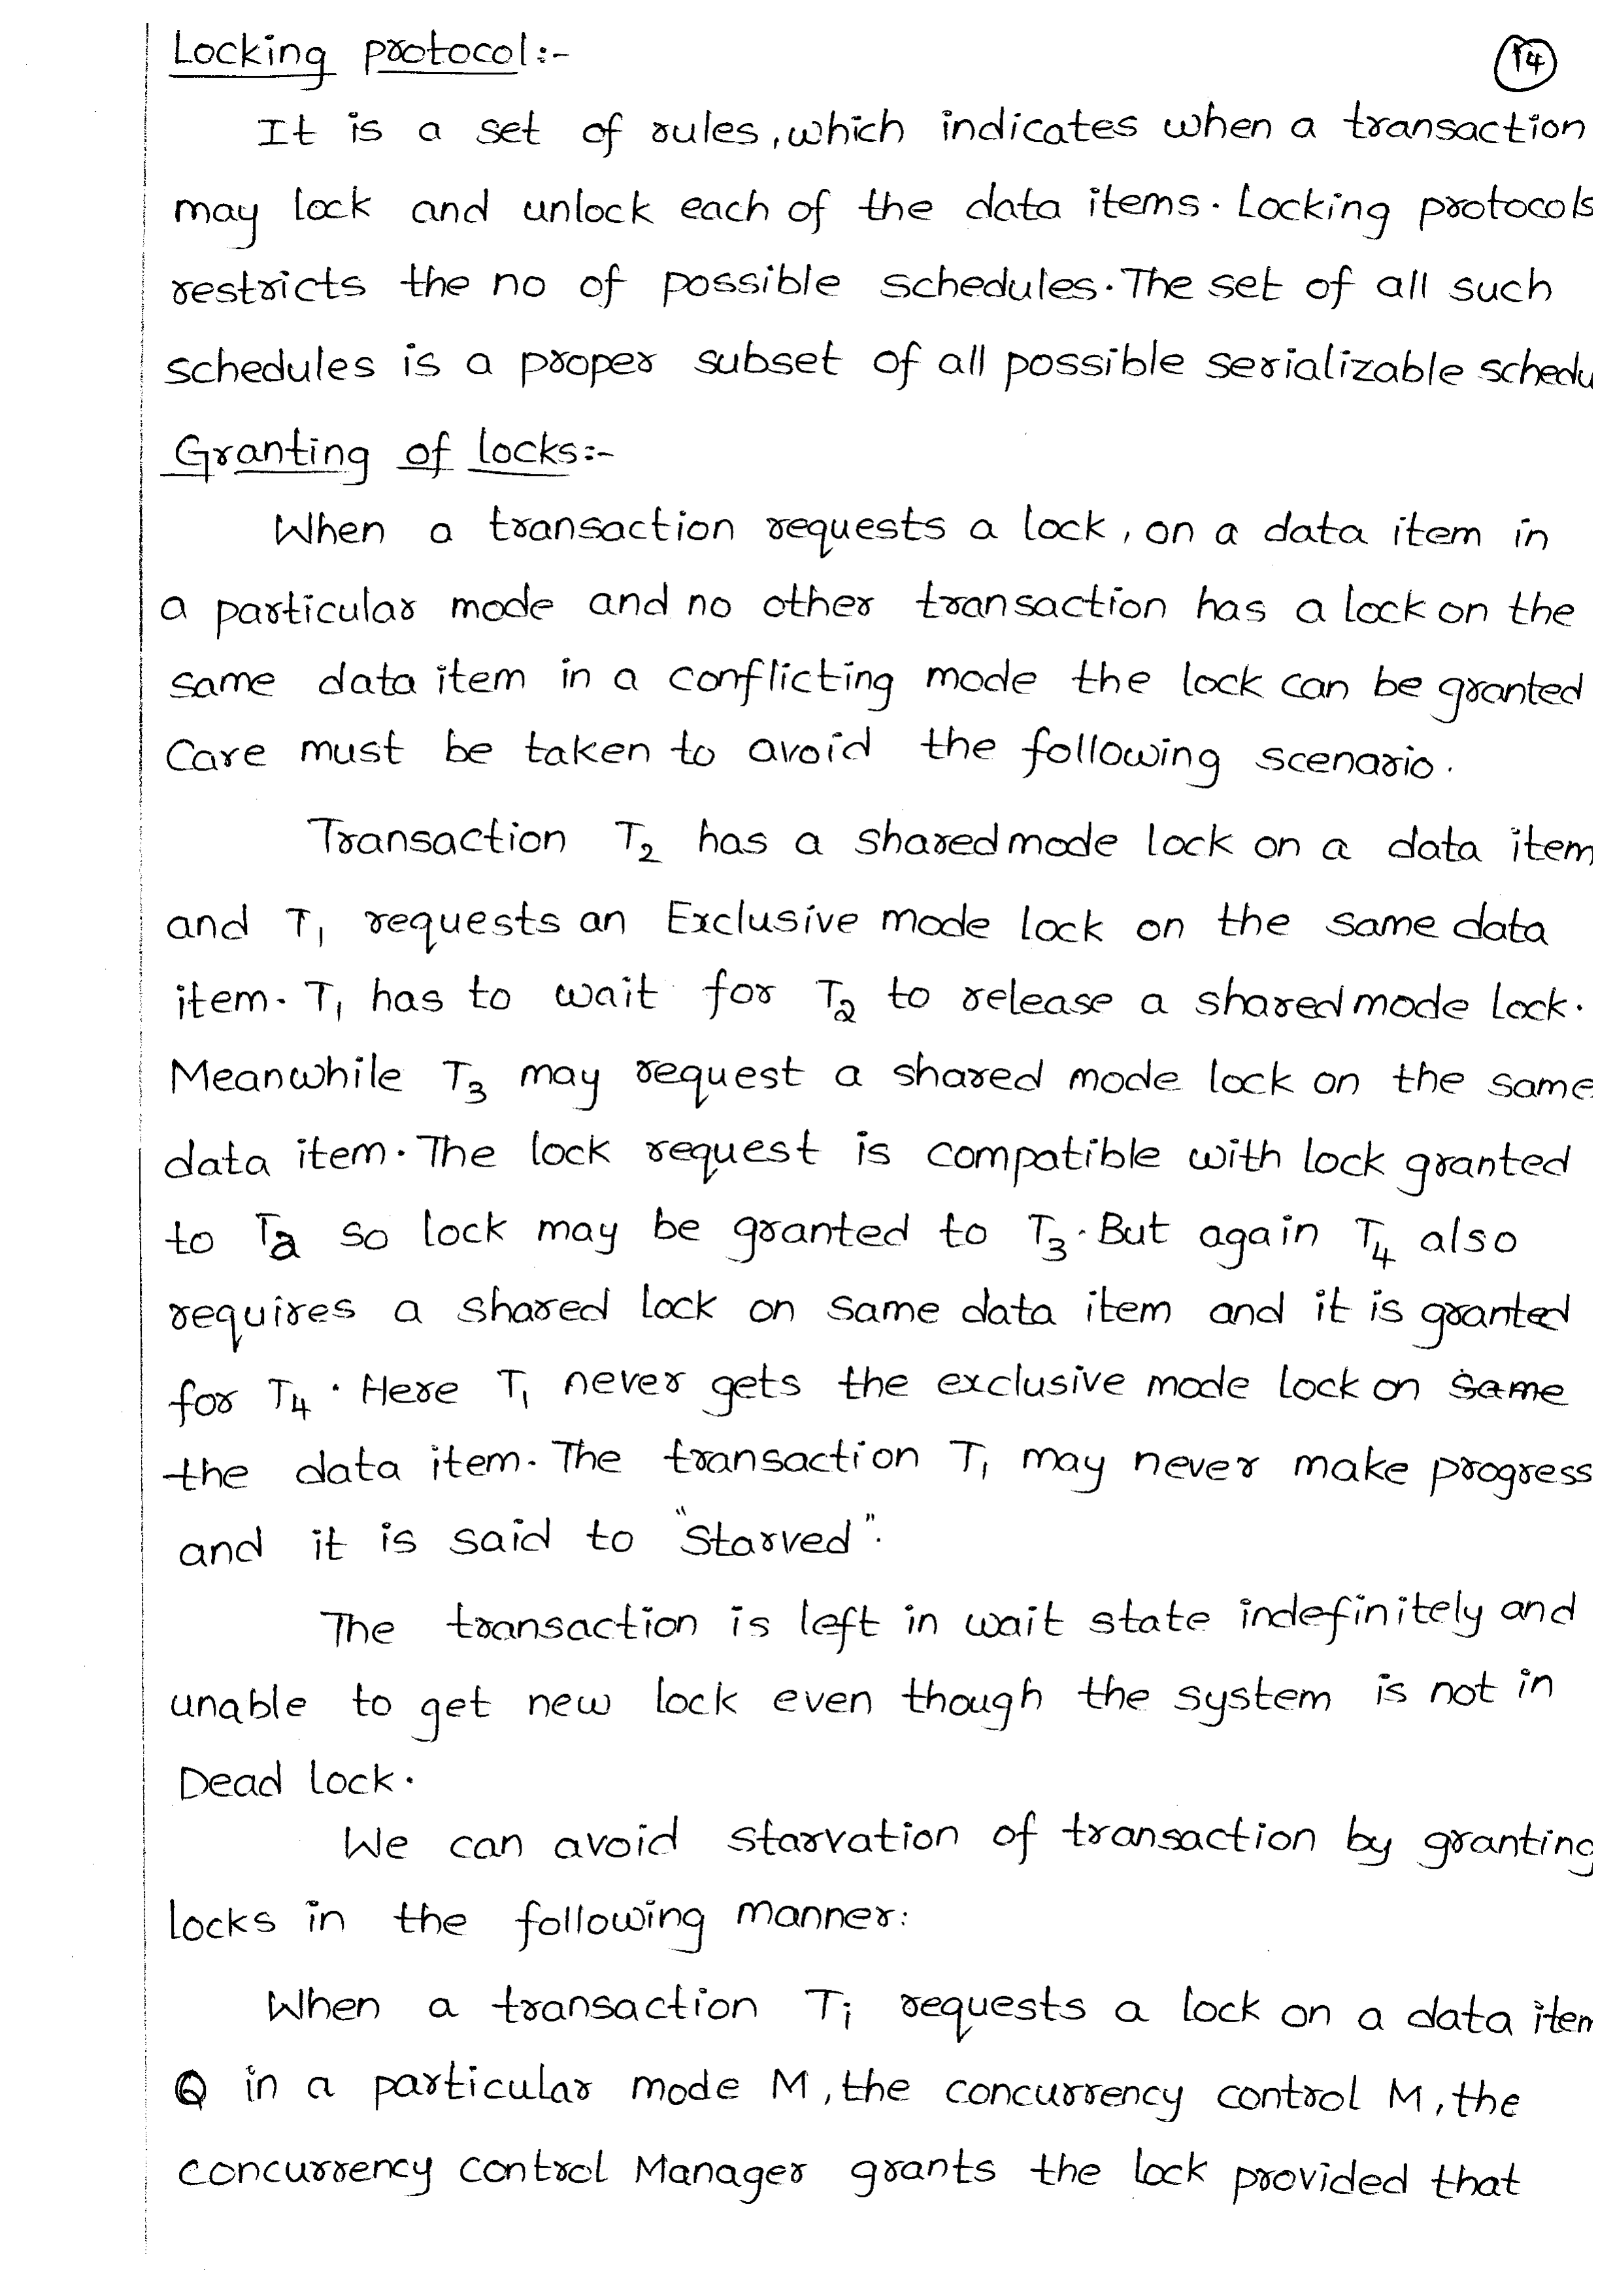 Locking protocol:-
14
It is a set of rules, which indicates when a transaction
may lock and unlock each of the data items. Locking protocols
restricts the no of possible schedules. The set of all such
schedules is a proper subset of all possible serializable schedu
Granting of locks:-
When a transaction requests a lock, on a data item in
a particular mode and no other transaction has a lock on the
same data item in a conflicting mode the lock can be granted
Care must be taken to avoid the following scenario.
Transaction T2 has a shared mode lock on a data item
and T1 requests an Exclusive mode lock on the same data
item. T1 has to wait for T2 to release a shared mode lock.
Meanwhile T3 may request a shared mode lock on the same
data item. The lock request is compatible with lock granted
to T2 so lock may be granted to T3. But again T4 also
requires a shared lock on same data item and it is granted
for T4. Here T1 never gets the exclusive mode lock on same
the data item. The transaction T1 may never make progress
and it is said to "Starved".
The transaction is left in wait state indefinitely and
unable to get new lock even though the system is not in
Dead lock.
We can avoid starvation of transaction by granting
locks in the following manner:
When a transaction Ti requests a lock on a data item
Q in a particular mode M, the concurrency control M, the
concurrency control Manager grants the lock provided that